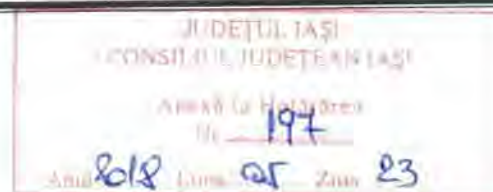 JUDEȚUL IAȘI
CONSILIUL JUDEȚEAN IAȘI
Anexă la Hotărârea
Nr. 197
Anul 2018 Luna 05 Ziua 23